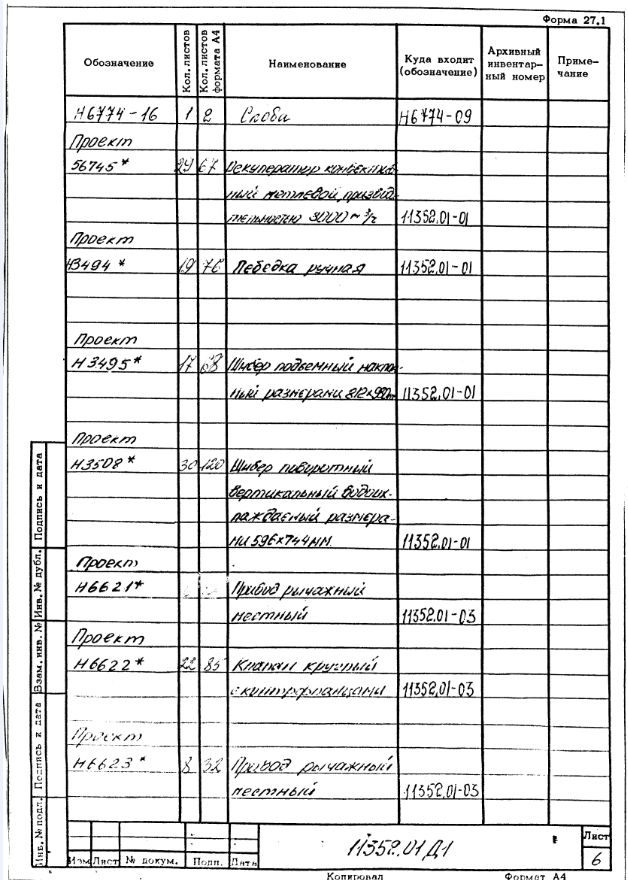 Форма 27.1
Обозначение Кол. листов Кол. листов формата А4 Наименование Куда входит (обозначение) Архивный инвентар- ный номер Приме- чание
Н6774-16 1 2 Скоба Н6774-09
Проект
56745* 29 67 Рекуператор конвектив-
ный петлевой, производи-
тельностью 3000 м³/ч 11352.01-01
Проект
Н3494* 19 76 Лебедка ручная 11352.01-01
Проект
Н3495* 17 68 Шибер подъемный наклон-
ный размерами 11352.01-01
Проект
Н3508* 30 120 Шибер поворотный
вертикальный водоох-
лаждаемый размера-
ми 596×744 мм. 11352.01-01
Проект
Н6621* Привод рычажный
местный 11352.01-03
Проект
Н6622* 22 85 Клапан круглый
с контрфланцами 11352.01-03
Проект
Н6623* 8 32 Привод рычажный
местный 11352.01-03
Инв. № подл. Подпись и дата Взам. инв. № Инв. № дубл. Подпись и дата
11352.01 Д1
Лист
6
Изм Лист № докум. Подп. Дата
Копировал Формат А4